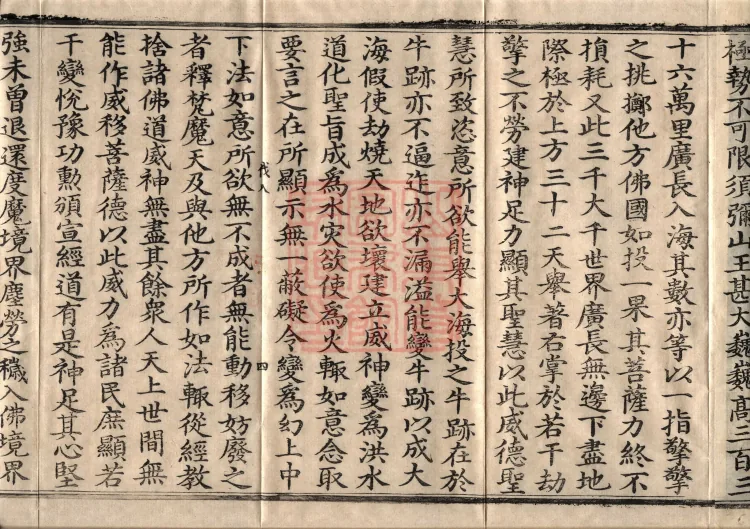 極勢不可限須彌山王甚大巍巍高三百三
十六萬里廣長入海其數亦等以一指擎擎
之挑擲他方佛國如投一果其菩薩力終不
損耗又此三千大千世界廣長無邊下盡地
際極於上方三十二天舉著右掌於若干劫
擎之不勞建神足力顯其聖慧以此威德聖
慧所致恣意所欲能舉大海投之牛跡在於
牛跡亦不逼迮亦不漏溢能變牛跡以成大
海假使劫燒天地欲壞建立威神變為洪水
道化聖旨成為水灾欲使為火輙如意念取
要言之在所顯示無一蔽礙令變為幻上中
四
下法如意所欲無不成者無能動移妨廢之
者釋梵魔天及與他方所作如法輙從經教
捨諸佛道威神無盡其餘衆人天上世間無
能作威移菩薩德以此威力為諸民庶顯若
干變悅豫功勲頒宣經道有是神足其心堅
強未曾退還度魔境界塵勞之穢入佛境界